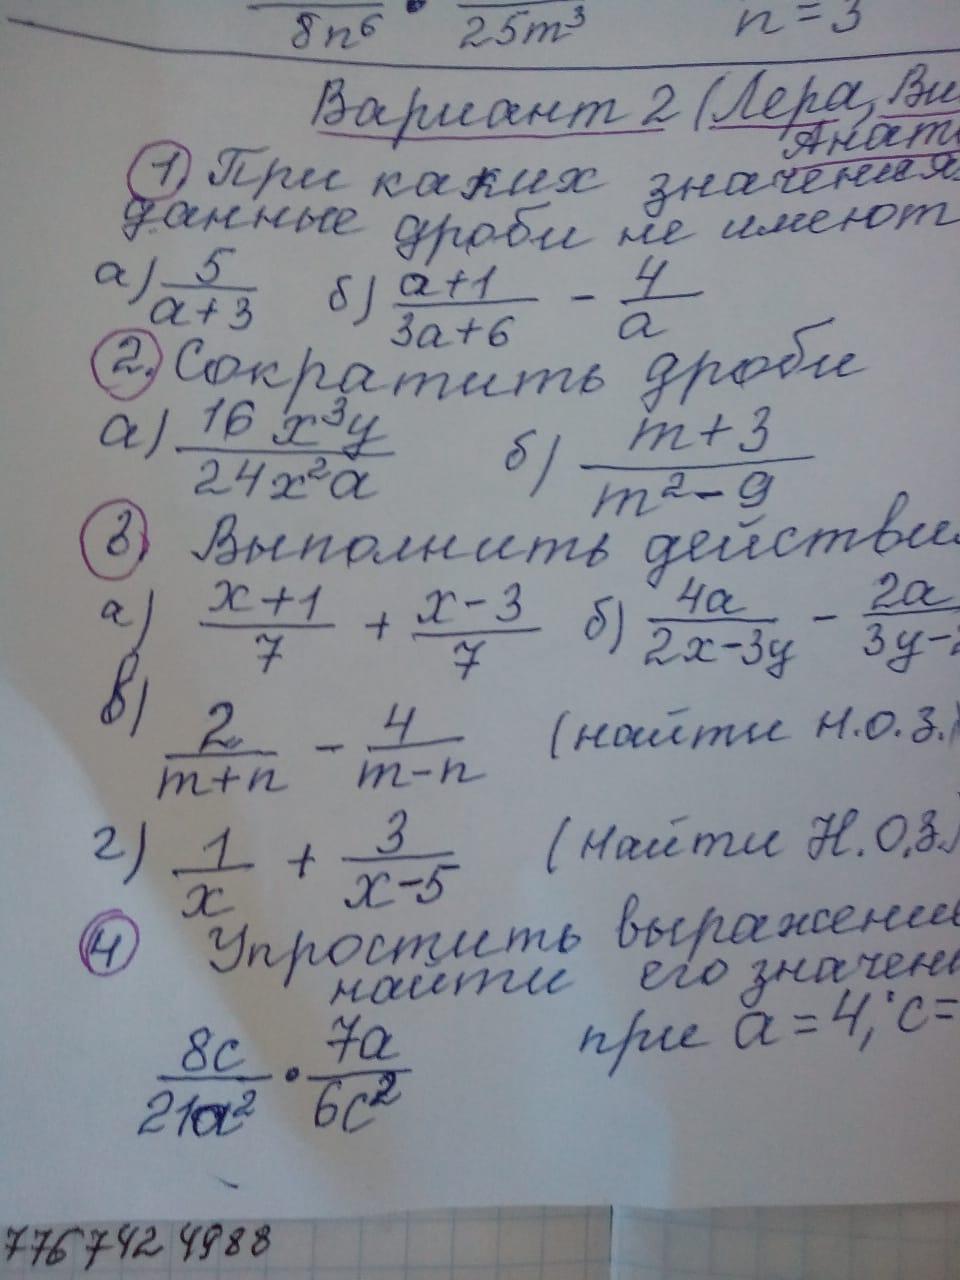 8n⁶ · 25m³ n = 3
Вариант 2 (Лера, Ви
Анат
1. При каких значения
данные дроби не имеют
а) 5/(a+3) б) (a+1)/(3a+6) - 4/a
2. Сократить дроби
а) 16x³y/24x²a б) (m+3)/(m²-9)
3) Выполнить действия
а) (x+1)/7 + (x-3)/7 б) 4a/(2x-3y) - 2a/(3y-2
в) 2/(m+n) - 4/(m-n) (найти н.о.з.)
г) 1/x + 3/(x-5) (найти Н.О.З.)
4 Упростить выражение
найти его значени
8c/21a² · 7a/6c² при a = 4, c =
776 742 4988